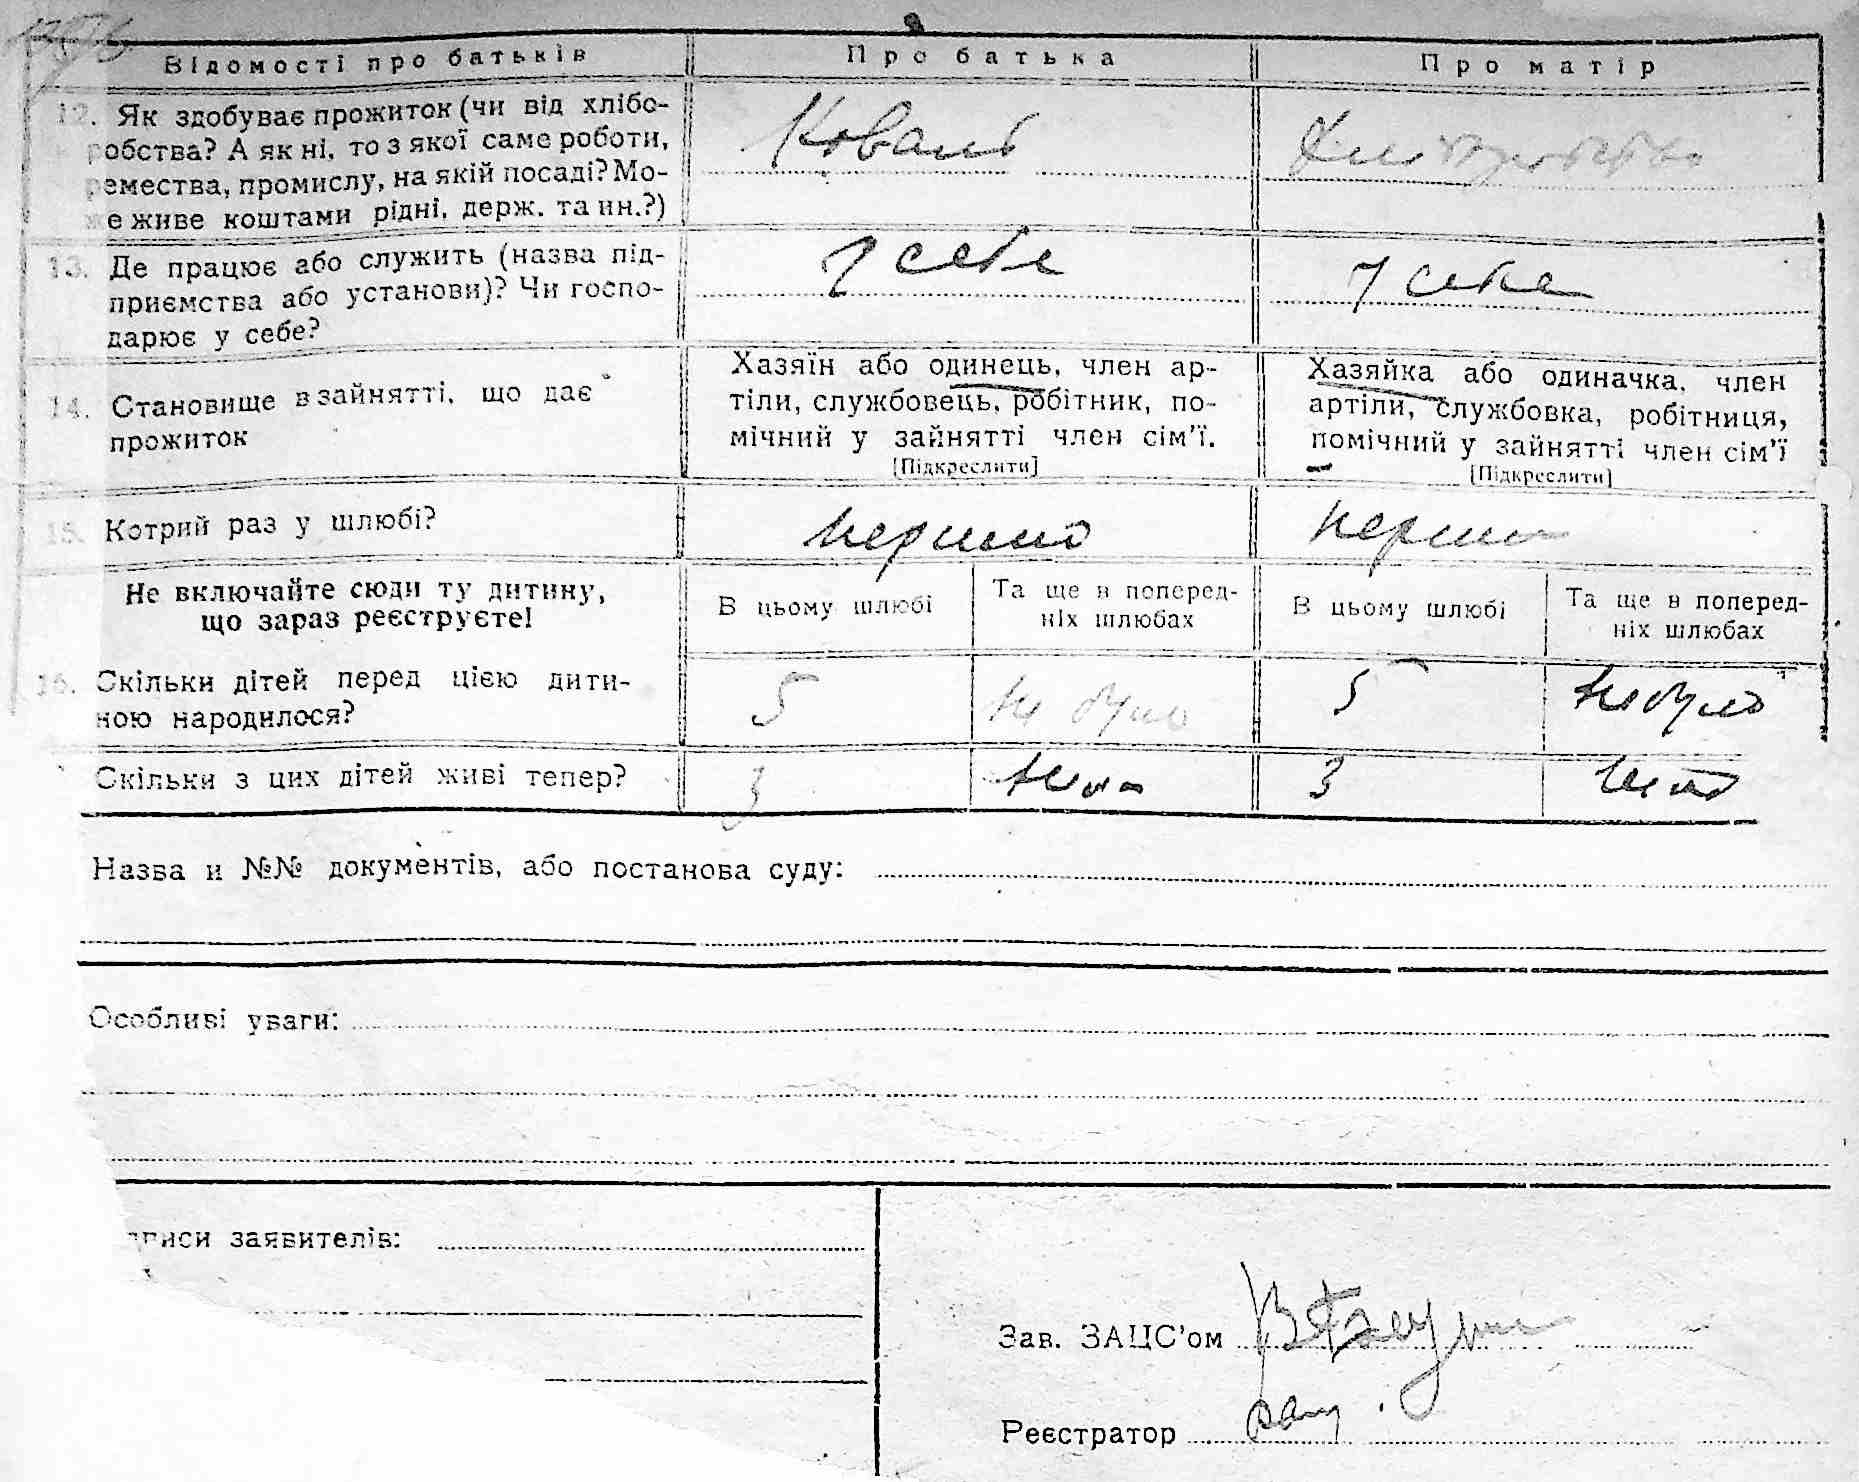 Відомості про батьків Про батька Про матір
12. Як здобуває прожиток (чи від хлібо-
робства? А як ні, то з якої саме роботи,
ремества, промислу, на якій посаді? Мо-
же живе коштами рідні, держ. та ин.?)
Коваль Хліборобство
13. Де працює або служить (назва під-
приємства або установи)? Чи госпо-
дарює у себе?
У себе у себе
14. Становище в зайнятті, що дає
прожиток
Хазяїн або одинець, член ар-
тіли, службовець, робітник, по-
мічний у зайнятті член сім'ї.
[Підкреслити]
Хазяйка або одиначка, член
артіли, службовка, робітниця,
помічний у зайнятті член сім'ї
[Підкреслити]
15. Котрий раз у шлюбі? перший перший
Не включайте сюди ту дитину,
що зараз реєструєте!
В цьому шлюбі
Та ще в поперед-
ніх шлюбах
В цьому шлюбі
Та ще в поперед-
ніх шлюбах
16. Скільки дітей перед цією дити-
ною народилося?
5 не було 5 не було
Скільки з цих дітей живі тепер? 3 3
Назва и №№ документів, або постанова суду:
Особливі уваги:
писи заявителів:
Зав. ЗАЦС'ом
Реєстратор